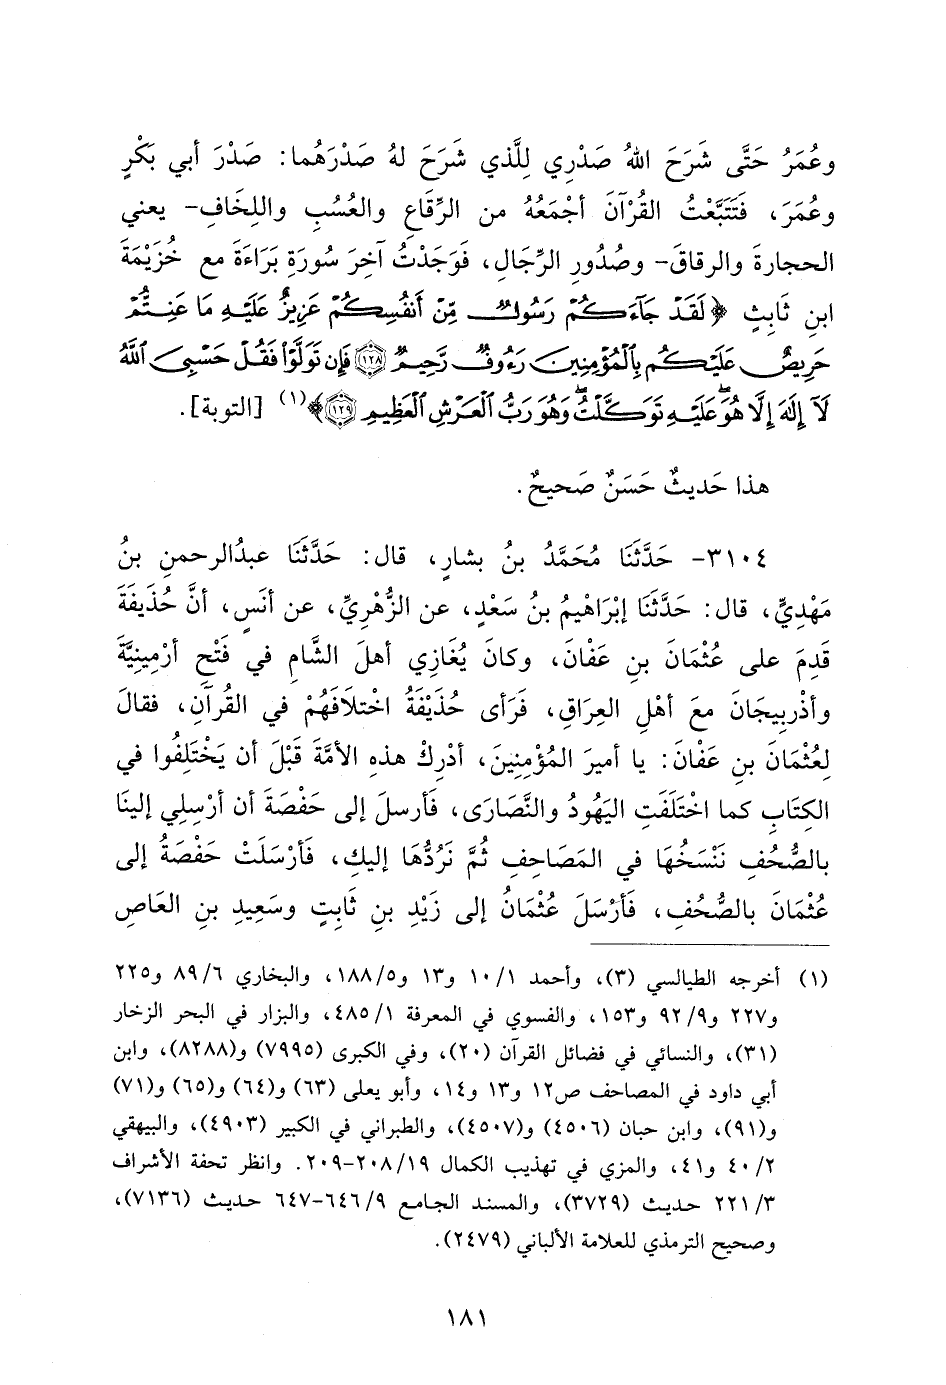 وعُمَرُ حَتَّى شَرَحَ اللهُ صَدْرِي لِلَّذي شَرَحَ لهُ صَدْرَهُما: صَدْرَ أبي بَكْرٍ
وعُمَرَ، فَتَتَبَّعْتُ القُرْآنَ أجْمَعُهُ من الرِّقَاعِ والعُسُبِ واللِخَافِ- يعني
الحجارةَ والرقاقَ- وصُدُورِ الرِّجَالِ، فَوَجَدْتُ آخِرَ سُورَةِ بَرَاءَةَ مع خُزَيْمَةَ
ابنِ ثَابِتٍ ﴿لَقَدْ جَآءَكُمْ رَسُولٌ مِّنْ أَنفُسِكُمْ عَزِيزٌ عَلَيْهِ مَا عَنِتُّمْ
حَرِيصٌ عَلَيْكُم بِالْمُؤْمِنِينَ رَءُوفٌ رَّحِيمٌ ١٢٨ فَإِن تَوَلَّوْا فَقُلْ حَسْبِيَ اللَّهُ
لَآ إِلَهَ إِلَّا هُوَ عَلَيْهِ تَوَكَّلْتُ وَهُوَ رَبُّ الْعَرْشِ الْعَظِيمِ ١٢٩﴾(١) [التوبة].
هذا حَديثٌ حَسَنٌ صَحيحٌ.
٣١٠٤- حَدَّثَنَا مُحَمَّدُ بنُ بشارٍ، قال: حَدَّثَنَا عبدُالرحمنِ بنُ
مَهْدِيٍّ، قال: حَدَّثَنَا إبْرَاهيْمُ بنُ سَعْدٍ، عن الزُّهْرِيِّ، عن أنَسٍ، أنَّ حُذَيفَةَ
قَدِمَ على عُثْمَانَ بنِ عَفْانَ، وكانَ يُغَازِي أهلَ الشَّامِ في فَتْحِ أرْمِينِيَّةَ
وأذْرِبيجَانَ معَ أهْلِ العِرَاقِ، فَرَأى حُذَيْفَةُ اخْتلَافَهُمْ في القُرآنِ، فقالَ
لِعُثْمَانَ بنِ عَفْانَ: يا أميرَ المُؤْمِنِينَ، أدْرِكْ هذه الأمَّةَ قَبْلَ أن يَخْتَلِفُوا في
الكِتَابِ كما اخْتَلَفَتِ اليَهُودُ والنَّصَارَى، فَأرسلَ إلى حَفْصَةَ أن أرْسِلِي إلينَا
بالصُّحُفِ نَنْسَخُهَا في المَصَاحِفِ ثُمَّ نَرُدُّهَا إليكِ، فَأرْسَلَتْ حَفْصَةُ إلى
عُثْمَانَ بالصُّحُفِ، فَأرْسَلَ عُثْمَانُ إلى زَيْدِ بنِ ثَابِتٍ وسَعِيدِ بنِ العَاصِ
(١) أخرجه الطيالسي (٣)، وأحمد ١/ ١٠ و١٣ و٥/ ١٨٨، والبخاري ٦/ ٨٩ و٢٢٥
و٢٢٧ و٩/ ٩٢ و١٥٣، والفسوي في المعرفة ١/ ٤٨٥، والبزار في البحر الزخار
(٣١)، والنسائي في فضائل القرآن (٢٠)، وفي الكبرى (٧٩٩٥) و(٨٢٨٨)، وابن
أبي داود في المصاحف ص١٢ و١٣ و١٤، وأبو يعلى (٦٣) و(٦٤) و(٦٥) و(٧١)
و(٩١)، وابن حبان (٤٥٠٦) و(٤٥٠٧)، والطبراني في الكبير (٤٩٠٣)، والبيهقي
٢/ ٤٠ و٤١، والمزي في تهذيب الكمال ١٩/ ٢٠٨-٢٠٩. وانظر تحفة الأشراف
٣/ ٢٢١ حديث (٣٧٢٩)، والمسند الجامع ٩/ ٦٤٦-٦٤٧ حديث (٧١٣٦)،
وصحيح الترمذي للعلامة الألباني (٢٤٧٩).
١٨١